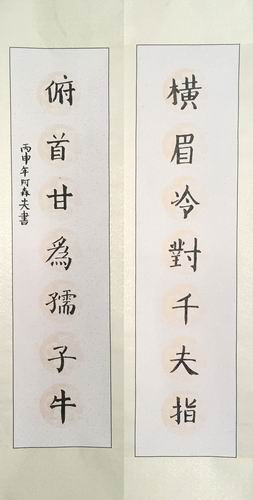 橫眉冷對千夫指
俯首甘為孺子牛
丙申年阿森夫書